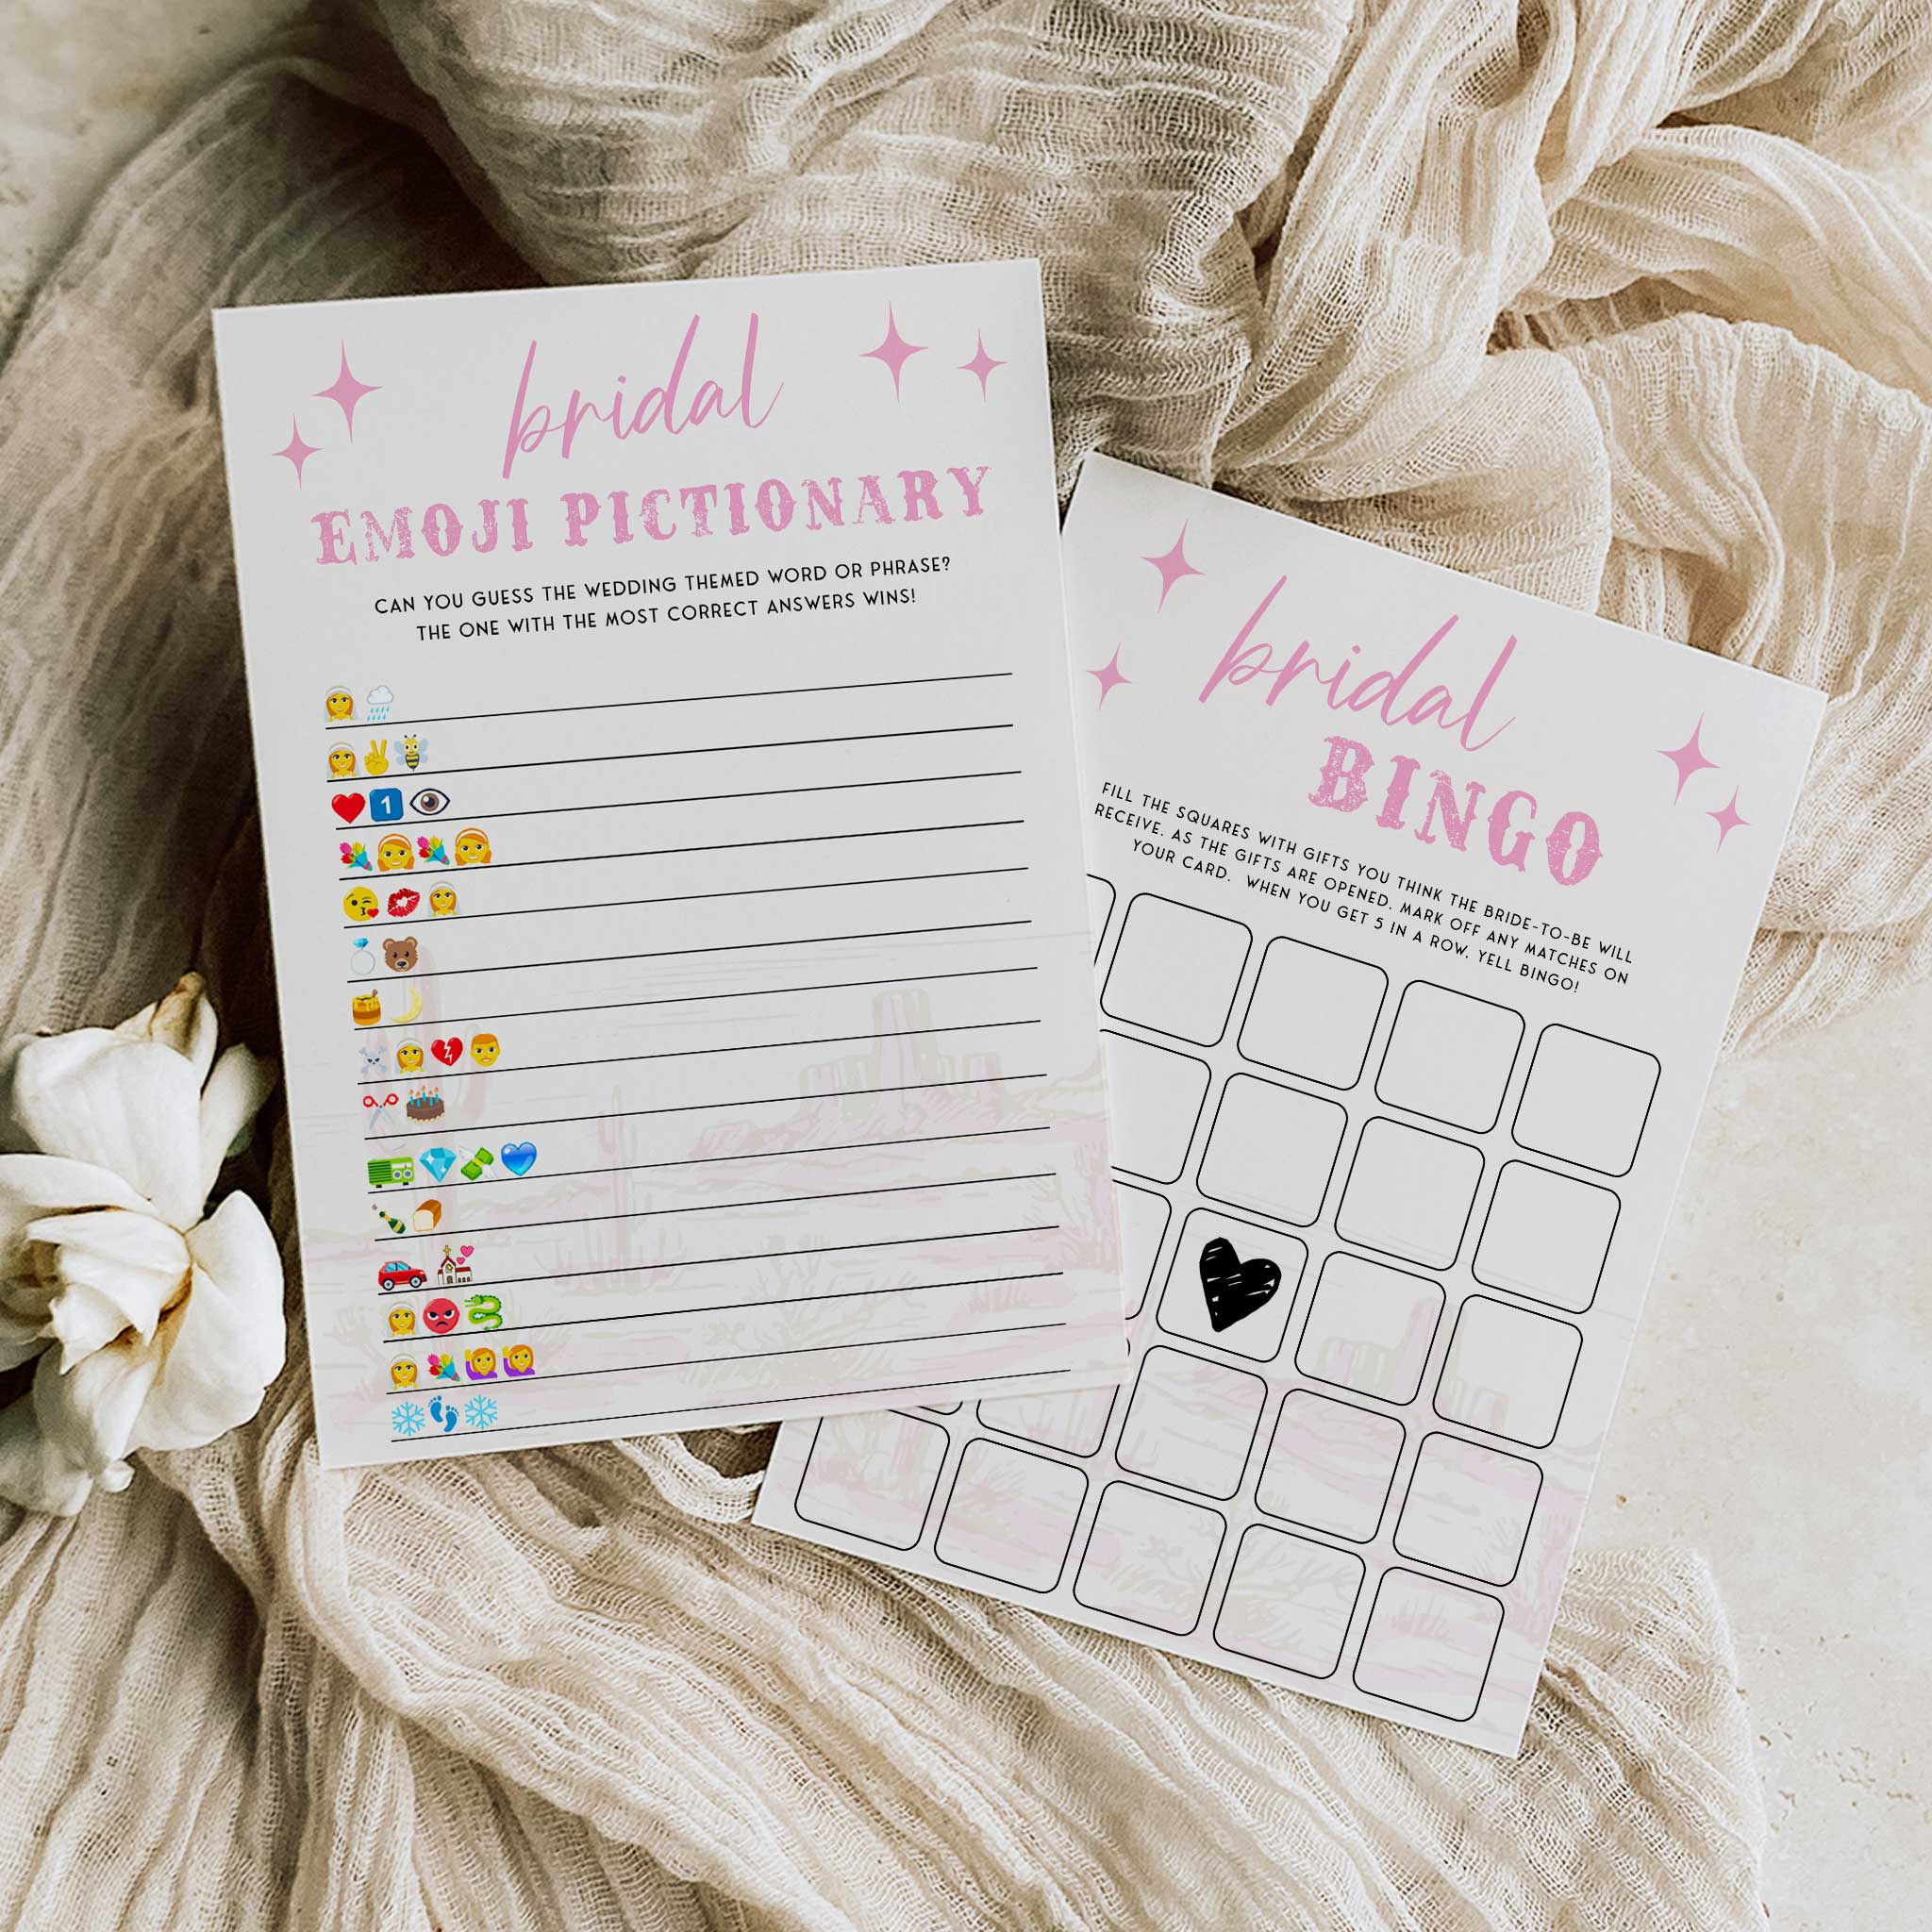 bridal
EMOJI PICTIONARY
CAN YOU GUESS THE WEDDING THEMED WORD OR PHRASE?
THE ONE WITH THE MOST CORRECT ANSWERS WINS!
1
bridal
BINGO
FILL THE SQUARES WITH GIFTS YOU THINK THE BRIDE-TO-BE WILL
RECEIVE. AS THE GIFTS ARE OPENED, MARK OFF ANY MATCHES ON
YOUR CARD. WHEN YOU GET 5 IN A ROW, YELL BINGO!